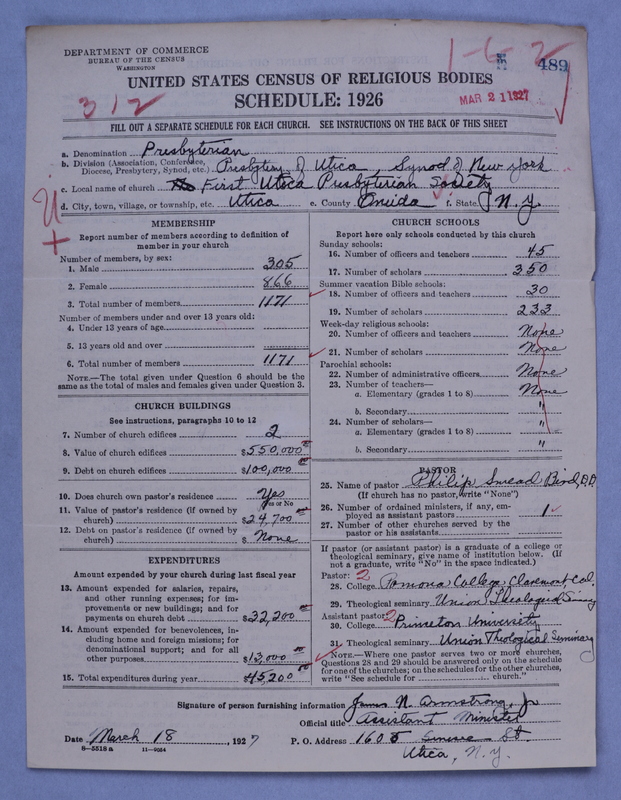 DEPARTMENT OF COMMERCE
BUREAU OF THE CENSUS
WASHINGTON
1-6 2
489
UNITED STATES CENSUS OF RELIGIOUS BODIES
SCHEDULE: 1926
312
MAR 21 1927
FILL OUT A SEPARATE SCHEDULE FOR EACH CHURCH. SEE INSTRUCTIONS ON THE BACK OF THIS SHEET
a. Denomination Presbyterian
b. Division (Association, Conference, Diocese, Presbytery, Synod, etc.) Presbytery of Utica, Synod of New York
c. Local name of church First Utica Presbyterian Society
d. City, town, village, or township, etc. Utica e. County Oneida f. State N.Y.
MEMBERSHIP
Report number of members according to definition of
member in your church
Number of members, by sex:
1. Male 305
2. Female 866
3. Total number of members 1171
Number of members under and over 13 years old:
4. Under 13 years of age
5. 13 years old and over
6. Total number of members 1171
NOTE.—The total given under Question 6 should be the
same as the total of males and females given under Question 3.
CHURCH BUILDINGS
See instructions, paragraphs 10 to 12
7. Number of church edifices 2
8. Value of church edifices $550,000 00
9. Debt on church edifices $100,000 00
10. Does church own pastor's residence Yes
Yes or No
11. Value of pastor's residence (if owned by
church) $24,700 00
12. Debt on pastor's residence (if owned by
church) $ None
EXPENDITURES
Amount expended by your church during last fiscal year
13. Amount expended for salaries, repairs,
and other running expenses; for im-
provements or new buildings; and for
payments on church debt $32,200 00
14. Amount expended for benevolences, in-
cluding home and foreign missions; for
denominational support; and for all
other purposes $13,000 00
15. Total expenditures during year $45,200 00
CHURCH SCHOOLS
Report here only schools conducted by this church
Sunday schools:
16. Number of officers and teachers 45
17. Number of scholars 350
Summer vacation Bible schools:
18. Number of officers and teachers 30
19. Number of scholars 233
Week-day religious schools:
20. Number of officers and teachers None
21. Number of scholars None
Parochial schools:
22. Number of administrative officers None
23. Number of teachers—
a. Elementary (grades 1 to 8) None
b. Secondary "
24. Number of scholars—
a. Elementary (grades 1 to 8) "
b. Secondary "
PASTOR
25. Name of pastor Philip Smead Bird, D.D.
(If church has no pastor, write "None")
26. Number of ordained ministers, if any, em-
ployed as assistant pastors 1
27. Number of other churches served by the
pastor or his assistants
If pastor (or assistant pastor) is a graduate of a college or
theological seminary, give name of institution below. (If
not a graduate, write "No" in the space indicated.)
Pastor: 2
28. College Pomona College, Claremont, Cal.
29. Theological seminary Union Theological Seminary
Assistant pastor: 2
30. College Princeton University
31. Theological seminary Union Theological Seminary
NOTE.—Where one pastor serves two or more churches,
Questions 28 and 29 should be answered only on the schedule
for one of the churches; on the schedules for the other churches,
write "See schedule for church."
Signature of person furnishing information James N. Armstrong, Jr
Official title Assistant Minister
Date March 18, 1927 P. O. Address 1605 St.
8-5518 a 11-9034
Utica, N.Y.